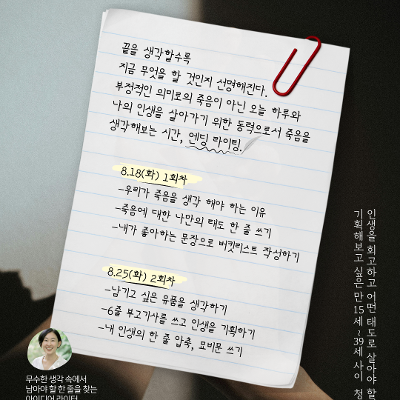 끝을 생각할수록
지금 무엇을 할 것인지 선명해진다.
부정적인 의미로의 죽음이 아닌 오늘 하루와
나의 인생을 살아가기 위한 동력으로서 죽음을
생각해보는 시간, 엔딩 라이팅.
8.18(화) 1회차
-우리가 죽음을 생각 해야 하는 이유
-죽음에 대한 나만의 태도 한 줄 쓰기
-내가 좋아하는 문장으로 버킷리스트 작성하기
8.25(화) 2회차
-남기고 싶은 유품을 생각하기
-6줄 부고기사를 쓰고 인생을 기획하기
-내 인생의 한 줄 압축, 묘비문 쓰기
인생을 회고하고 어떤 태도로 살아야 할
기획해보고 싶은 만 15세~39세 사이 청
무수한 생각 속에서
남아야 할 한 줄을 찾는
아이디어 라이터